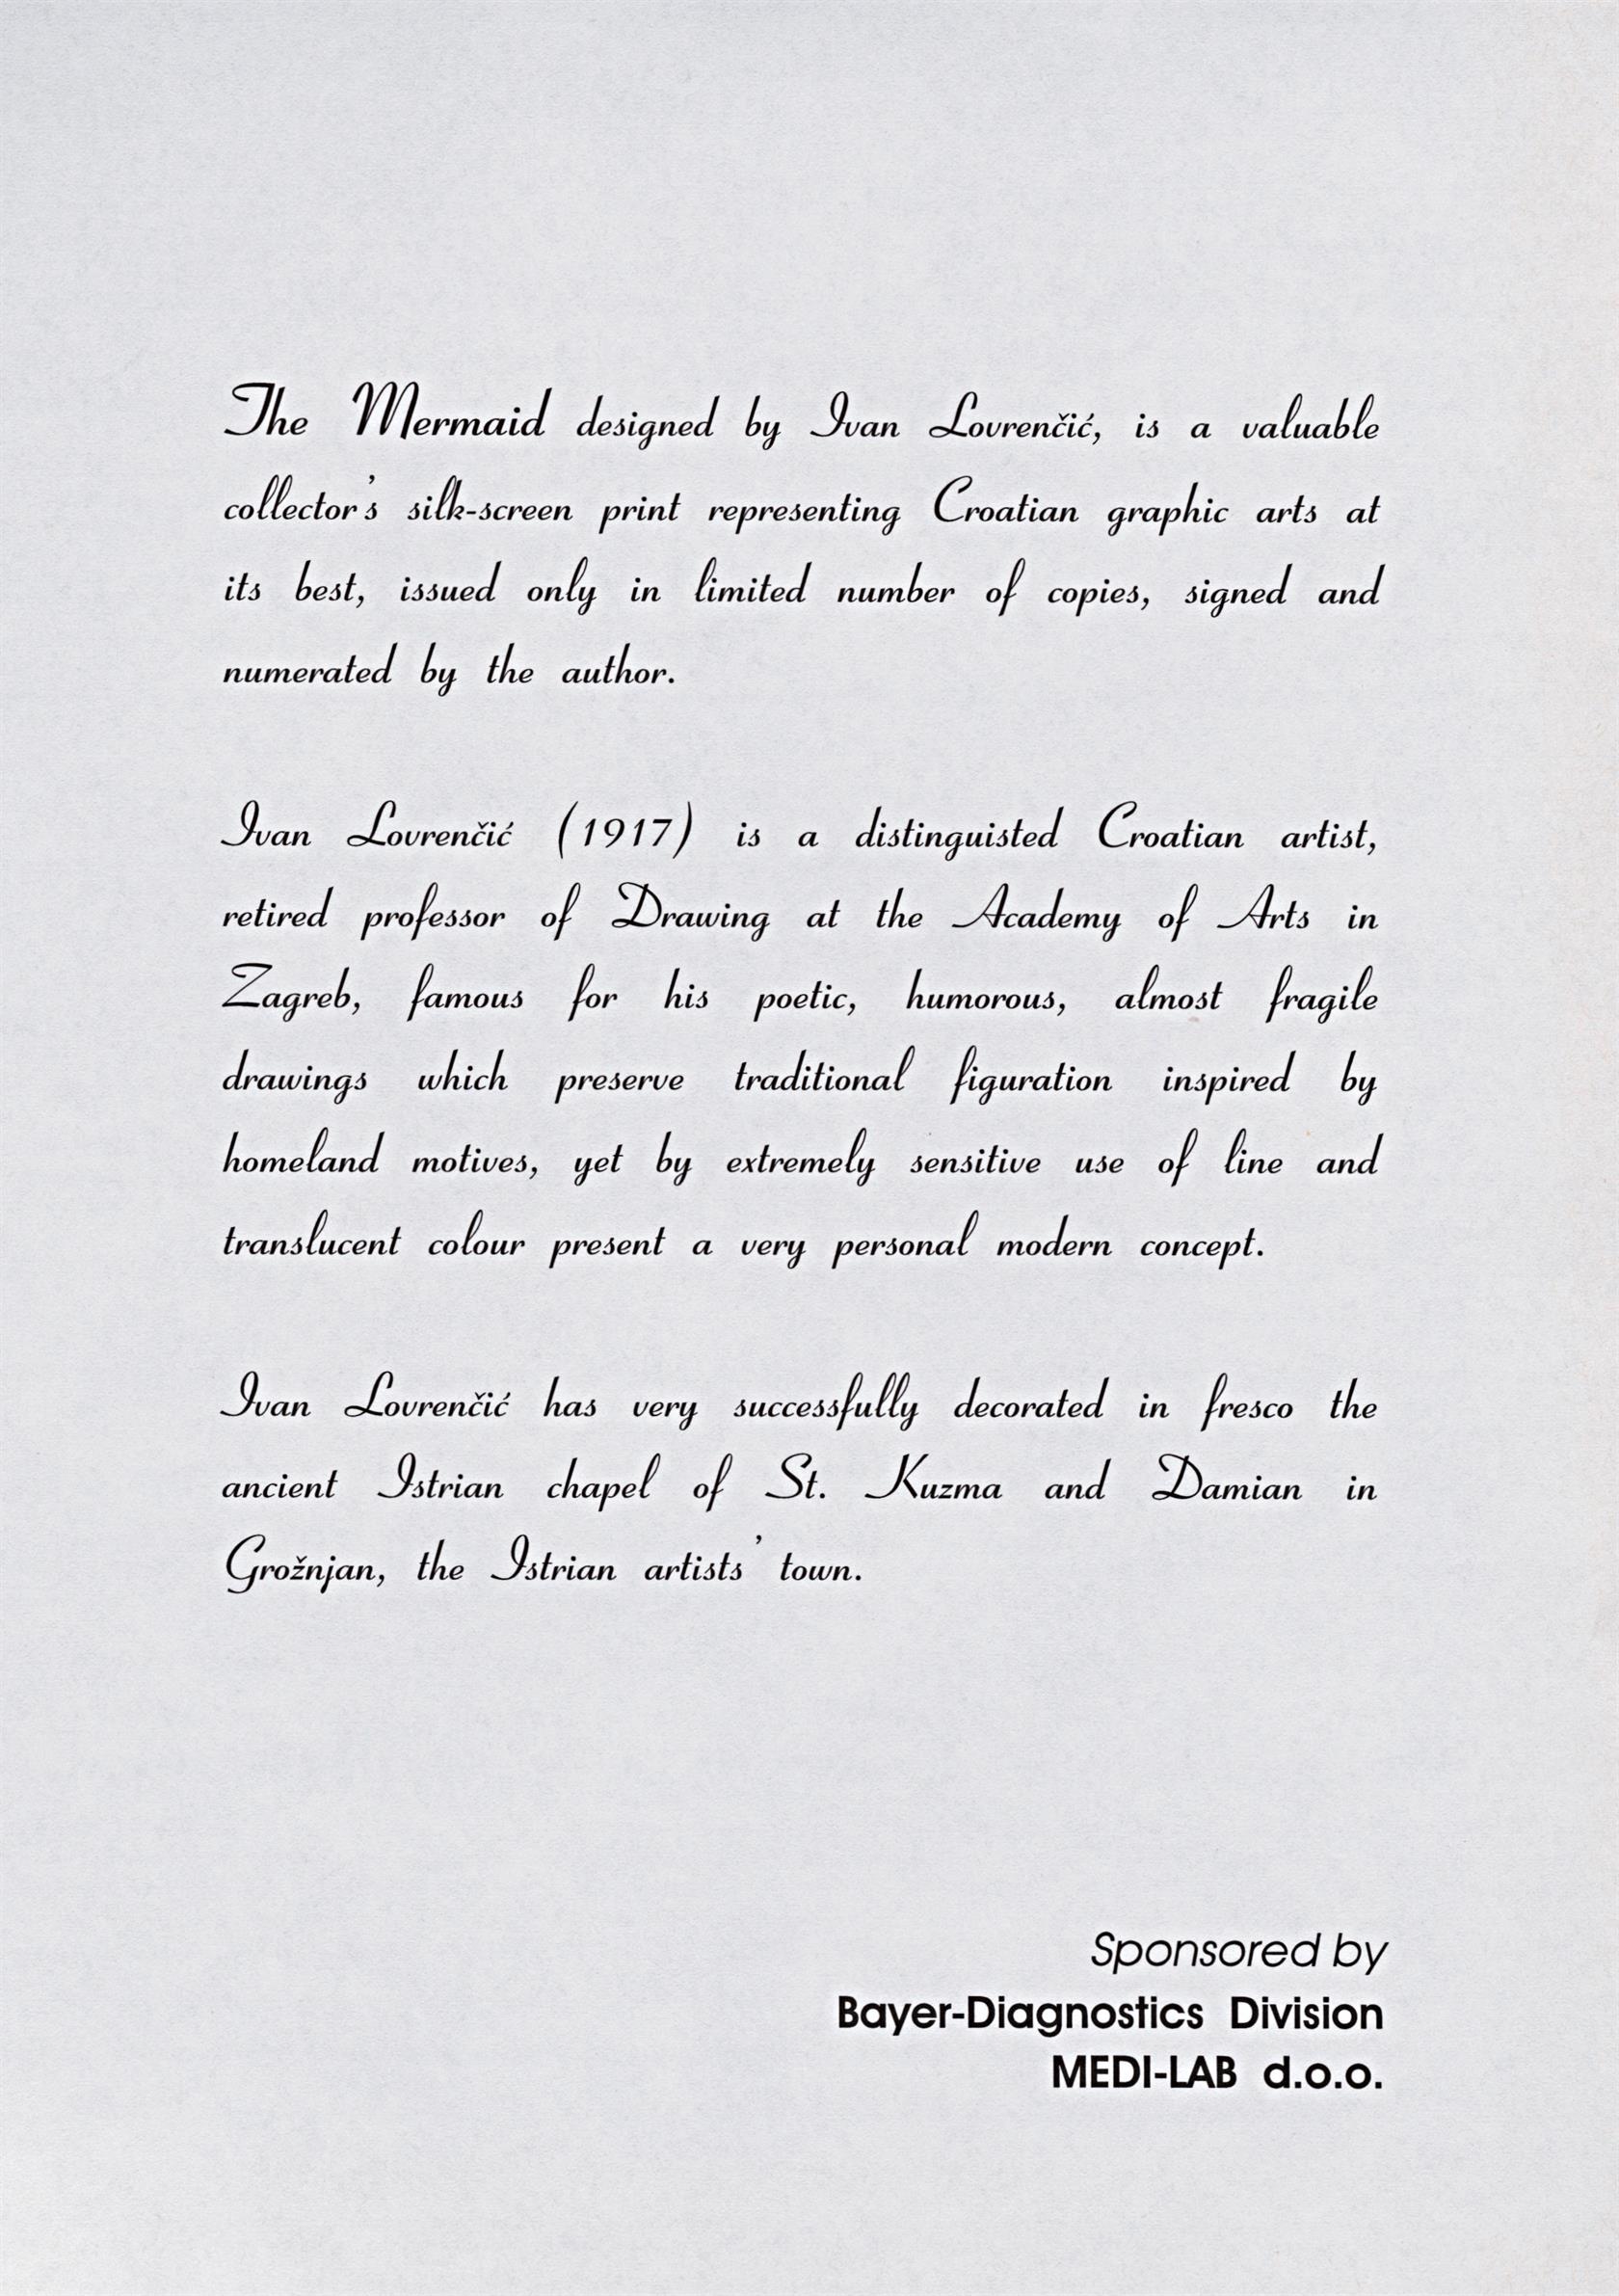 The Mermaid designed by Ivan Lovrenčić, is a valuable
collector's silk-screen print representing Croatian graphic arts at
its best, issued only in limited number of copies, signed and
numerated by the author.
Ivan Lovrenčić (1917) is a distinguisted Croatian artist,
retired professor of Drawing at the Academy of Arts in
Zagreb, famous for his poetic, humorous, almost fragile
drawings which preserve traditional figuration inspired by
homeland motives, yet by extremely sensitive use of line and
translucent colour present a very personal modern concept.
Ivan Lovrenčić has very successfully decorated in fresco the
ancient Istrian chapel of St. Kuzma and Damian in
Grožnjan, the Istrian artists' town.
Sponsored by
Bayer-Diagnostics Division
MEDI-LAB d.o.o.